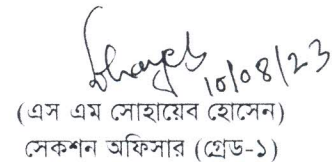 Shoyeb 10/08/23
(এস এম সোহায়েব হোসেন)
সেকশন অফিসার (গ্রেড-১)